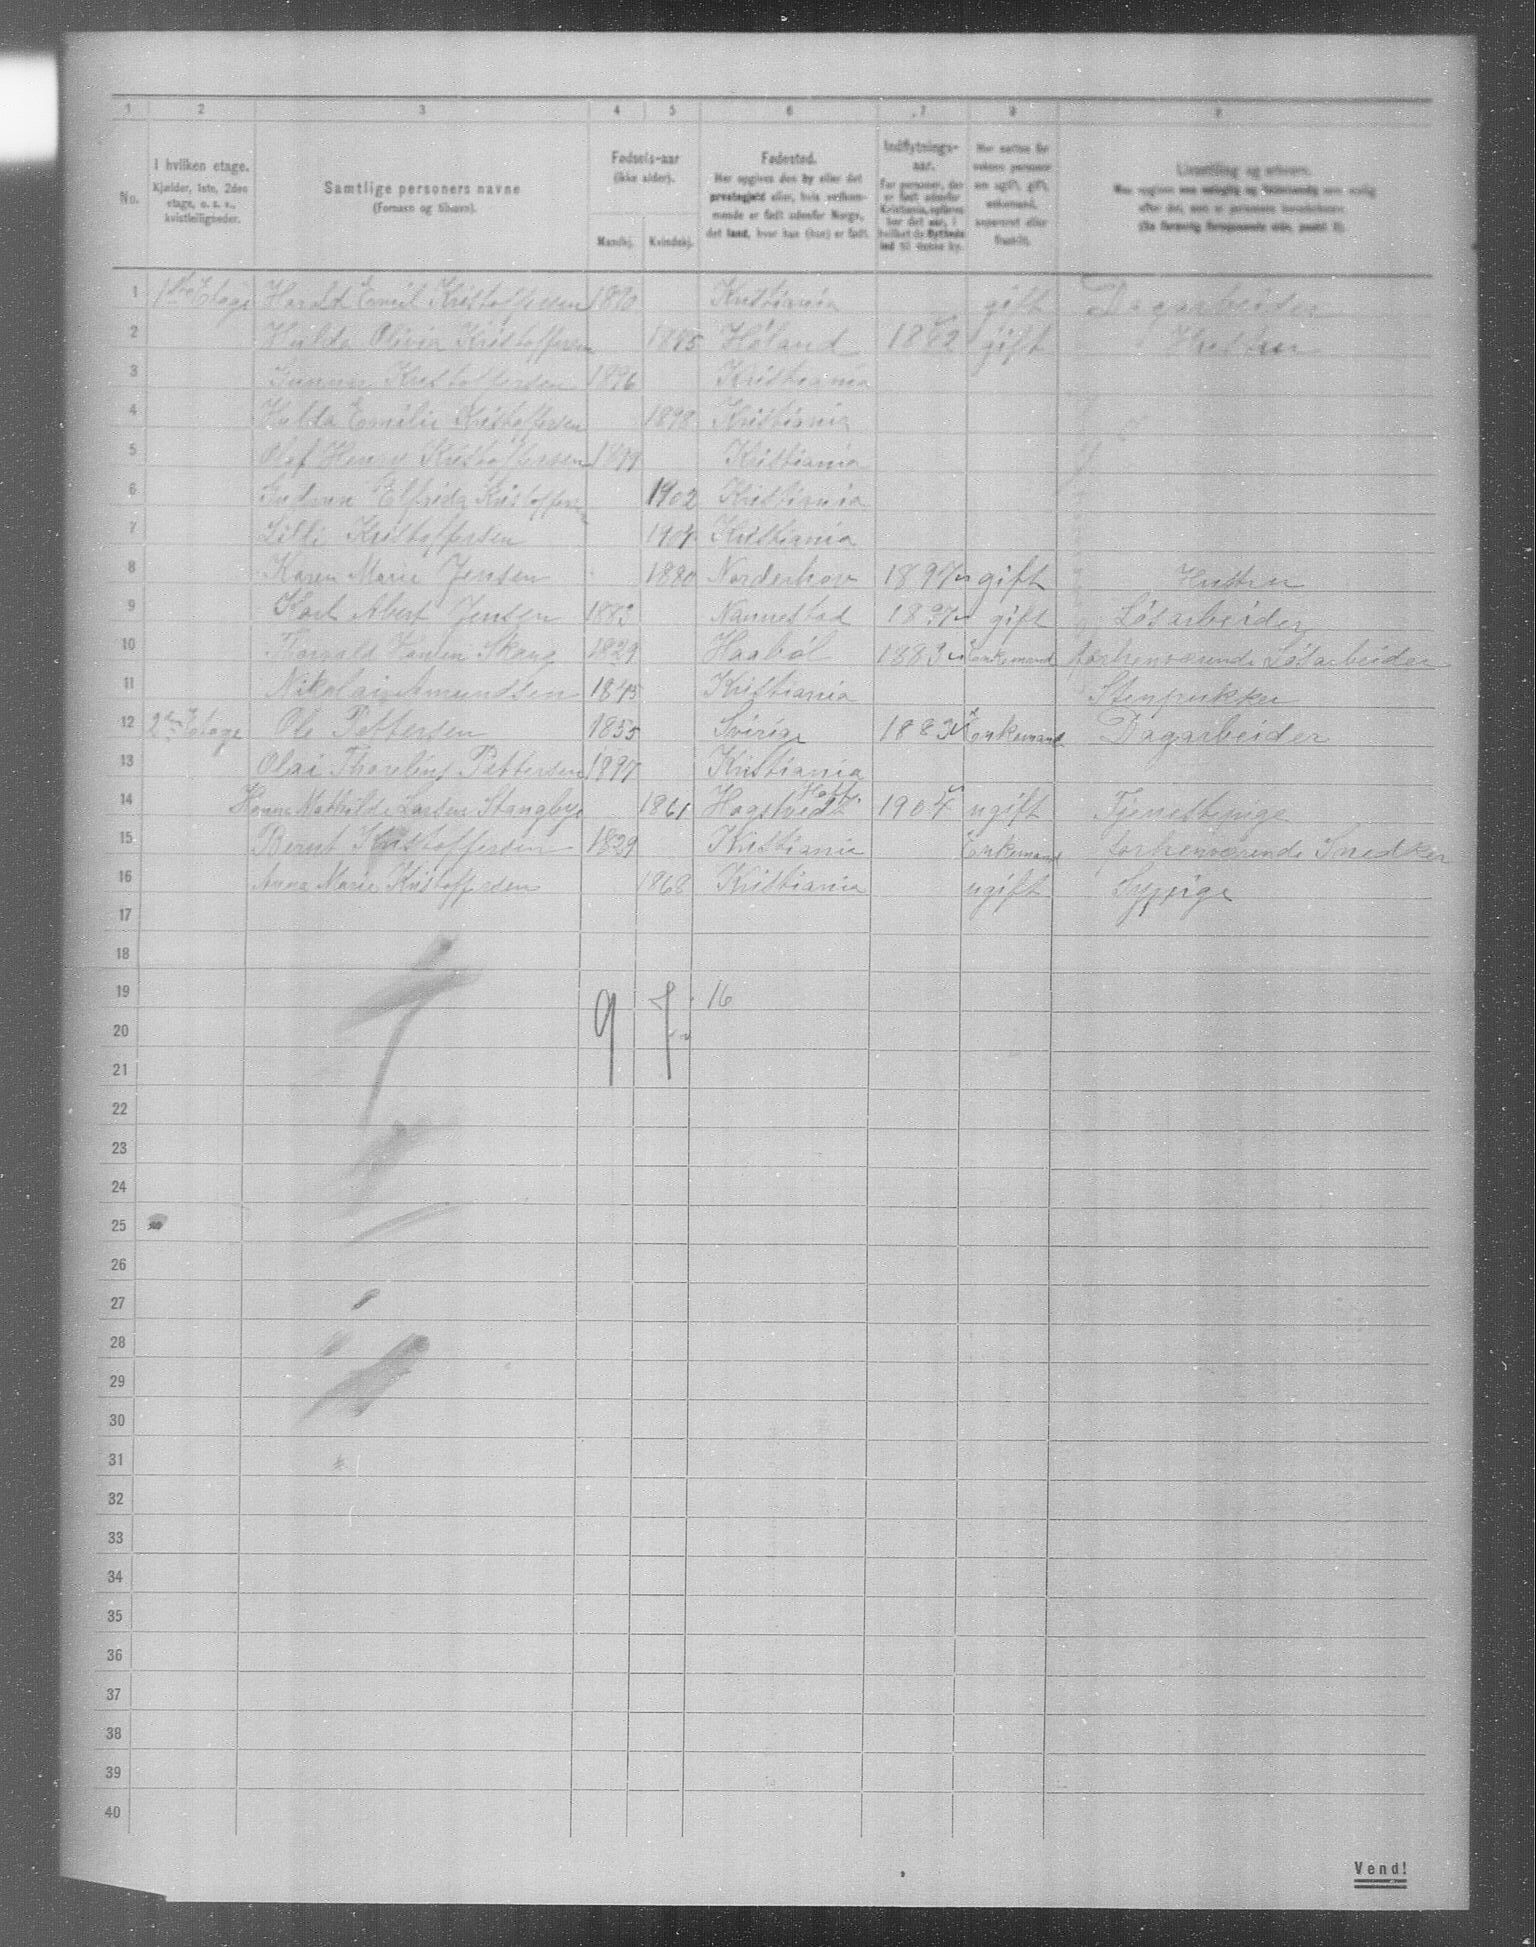 1 2 3 4 5 6 7 8 9
No.
I hvilken etage. Kjælder, 1ste, 2den etage, o. s. v., kvistleiligheder.
Samtlige personers navne (Fornavn og tilnavn).
Fødsels-aar (ikke alder). Mandkj. Kvindekj.
Fødested. Her opgives den by eller det præstegjeld eller, hvis vedkommende er født udenfor Norge, det land, hvor han (hun) er født.
Indflytnings-aar. For personer, der er født udenfor Kristiania, opføres her det aar, i hvilket de flyttede ind til denne by.
Livsstilling og erhverv.
1 1ste Etage Harald Emil Kristoffersen Kristiania gift Dagarbeider
2 Hulda Olivia Kristoffersen Høland gift Hustru
3 Gunnar Kristoffersen 1896 Kristiania
4 Hulda Emilie Kristoffersen 1898 Kristiania
5 Olaf Henry Kristoffersen 1899 Kristiania
6 Elfrida Kristoffersen 1902 Kristiania
7 Lilli Kristoffersen Kristiania
8 Karen Marie Jensen 1880 Norderhov 1897 gift Hustru
9 Karl Albert Jensen 1883 Nannestad 1897 gift Løsarbeider
10 Thorvald Hansen Skaug 1829 Haabøl 1883 Enkemand forhenværende Løsarbeider
11 Nikolai Amundsen 1845 Kristiania Stenpukker
12 2den Etage Ole Pettersen 1855 Sverige 1883 Enkemand Dagarbeider
13 Olai Thorelius Pettersen 1897 Kristiania
14 Hanna Mathilde Larsen Stangbye 1861 Hogstvedt 1904 ugift Tjenestepige
15 Bernt Kristoffersen 1829 Kristiania Enkemand forhenværende Snedker
16 Anna Marie Kristoffersen 1868 Kristiania ugift Sypige
17
18
19 9 7 16
20
21
22
23
24
25
26
27
28
29
30
31
32
33
34
35
36
37
38
39
40
Vend!